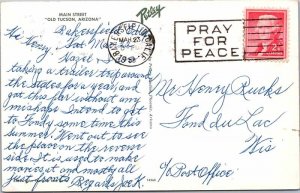 MAIN STREET
"OLD TUCSON, ARIZONA"
Bakersfield
Hi Henry, Sat Mar
Hazel &
taking a trailer trip around
the States for a year, and
got this far without any
mishaps. Intend to get
to Fondy some time this
summer. Went out to see
the place on the reverse
side. It is used to make
movies at and mostly all
just fronts. Regards, Jack.
PRAY
FOR
PEACE
Mr Henry Rucks
Fond du Lac
Wis
c/o Post Office